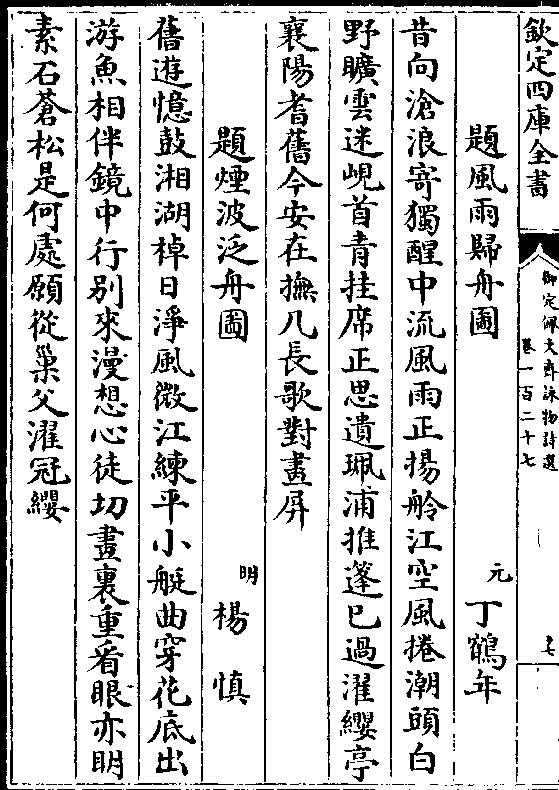 欽定四庫全書
御定佩文齋詠物詩選
卷一百二十七
題風雨歸舟圖
元
丁鶴年
昔向滄浪寄獨醒中流風雨正揚舲江空風捲潮頭白
野曠雲迷峴首青挂席正思遺珮浦推蓬已過濯纓亭
襄陽耆舊今安在撫几長歌對畫屏
題煙波泛舟圖
明
楊慎
舊遊憶鼓湘湖棹日淨風微江練平小艇曲穿花底出
游魚相伴鏡中行别來漫想心徒切畫裏重看眼亦明
素石蒼松是何處願從巢父濯冠纓